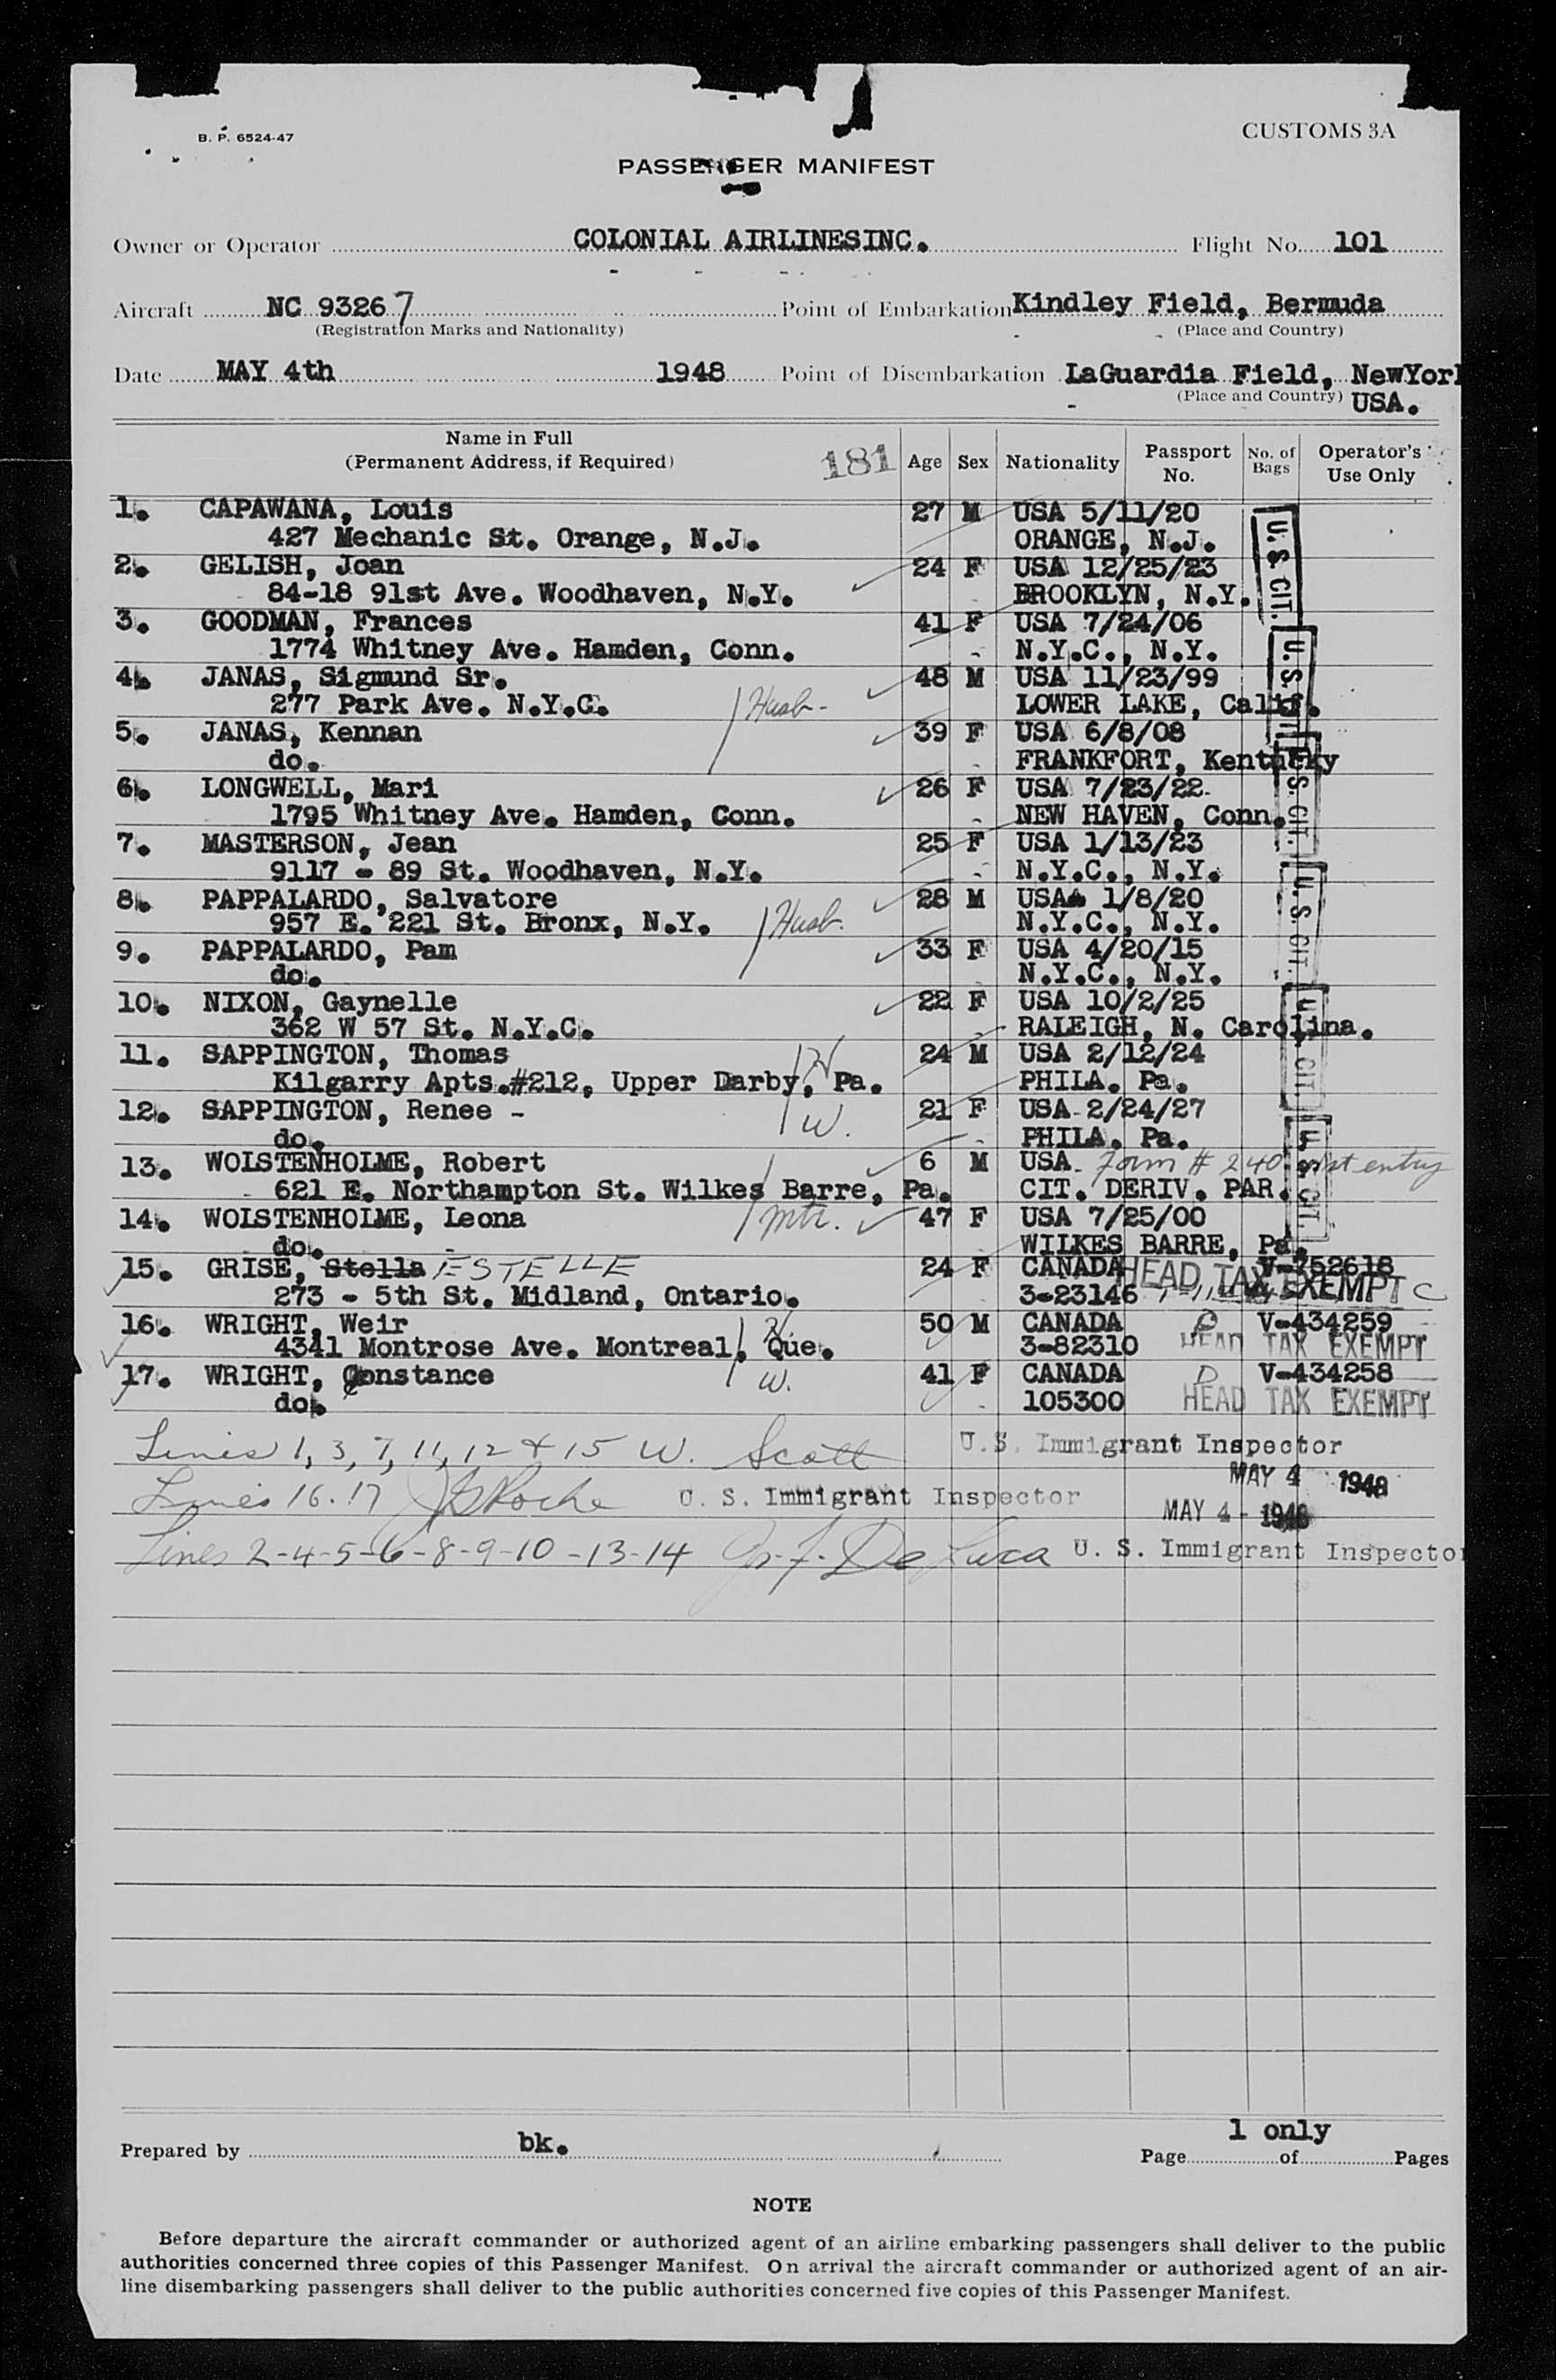 B. P. 6524-47
CUSTOMS 3A
PASSENGER MANIFEST
Owner or Operator COLONIAL AIRLINESINC. Flight No. 101
Aircraft NC 93267 Point of Embarkation Kindley Field, Bermuda
(Registration Marks and Nationality) (Place and Country)
Date MAY 4th 1948 Point of Disembarkation LaGuardia Field, NewYork
(Place and Country) USA.
Name in Full
(Permanent Address, if Required) 181 Age Sex Nationality Passport No. No. of Bags Operator's Use Only
1. CAPAWANA, Louis 27 M USA 5/11/20
427 Mechanic St. Orange, N.J. ORANGE, N.J. U.S. CIT.
2. GELISH, Joan 24 F USA 12/25/23
84-18 91st Ave. Woodhaven, N.Y. BROOKLYN, N.Y.
3. GOODMAN, Frances 41 F USA 7/24/06
1774 Whitney Ave. Hamden, Conn. N.Y.C., N.Y. U.S. CIT.
4. JANAS, Sigmund Sr. 48 M USA 11/23/99
277 Park Ave. N.Y.C. Husb- LOWER LAKE, Calif.
5. JANAS, Kennan 39 F USA 6/8/08
do. FRANKFORT, Kentucky
6. LONGWELL, Mari 26 F USA 7/23/22 U.S. CIT.
1795 Whitney Ave. Hamden, Conn. NEW HAVEN, Conn.
7. MASTERSON, Jean 25 F USA 1/13/23
9117 - 89 St. Woodhaven, N.Y. N.Y.C., N.Y.
8. PAPPALARDO, Salvatore 28 M USA 1/8/20 U.S. CIT.
957 E. 221 St. Bronx, N.Y. Husb. N.Y.C., N.Y.
9. PAPPALARDO, Pam 33 F USA 4/20/15
do. N.Y.C., N.Y.
10. NIXON, Gaynelle 22 F USA 10/2/25
362 W 57 St. N.Y.C. RALEIGH, N. Carolina. U.S. CIT.
11. SAPPINGTON, Thomas H 24 M USA 2/12/24
Kilgarry Apts.#212, Upper Darby, Pa. PHILA. Pa.
12. SAPPINGTON, Renee - W. 21 F USA-2/24/27
do. PHILA. Pa.
13. WOLSTENHOLME, Robert 6 M USA. Form # 240 1st entry
621 E. Northampton St. Wilkes Barre, Pa. CIT. DERIV. PAR. U.S. CIT.
14. WOLSTENHOLME, Leona Mtr. 47 F USA 7/25/00
do. WILKES BARRE, Pa.
15. GRISE, Stella ESTELLE 24 F CANADA V-752618
273 - 5th St. Midland, Ontario. 3-23146 HEAD TAX EXEMPT C
16. WRIGHT, Weir H. 50 M CANADA V-434259
4341 Montrose Ave. Montreal, Que. 3-82310 HEAD TAX EXEMPT
17. WRIGHT, Constance W. 41 F CANADA D V-434258
do. 105300 HEAD TAX EXEMPT
Lines 1, 3, 7, 11, 12 & 15 W. Scott U.S. Immigrant Inspector
MAY 4 1948
Lines 16.17 JB Roche U. S. Immigrant Inspector
MAY 4 - 1948
Lines 2-4-5-6-8-9-10-13-14 De Luca U. S. Immigrant Inspector
Prepared by bk. 1 only
Page of Pages
NOTE
Before departure the aircraft commander or authorized agent of an airline embarking passengers shall deliver to the public
authorities concerned three copies of this Passenger Manifest. On arrival the aircraft commander or authorized agent of an air-
line disembarking passengers shall deliver to the public authorities concerned five copies of this Passenger Manifest.